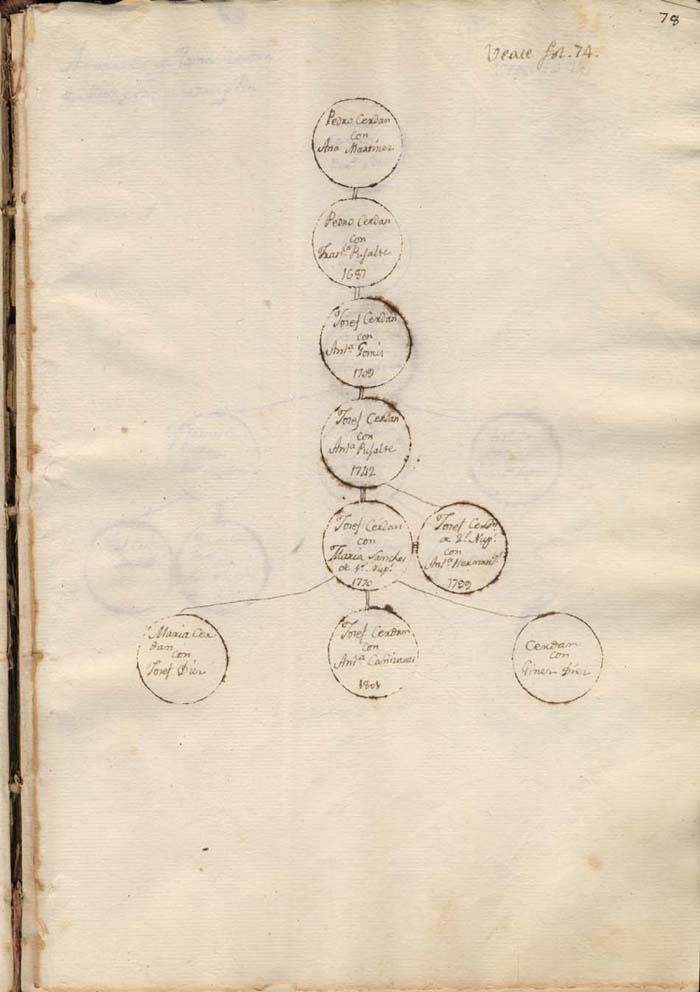 78
Vease fol. 74.
Pedro Cerdan
con
Ana Martinez
Pedro Cerdan
con
Fran.ca Risalte
1687
Josef Cerdan
con
Ant.a Gomis
1709
Josef Cerdan
con
Ant.a Risalte
1742
Josef Cerdan
con
Maria Sanches
de 1.s Nup.s
1770
Josef Cerdan
de 2.s Nup.s
con
Ant.a
1789
Maria Cer
dan
con
Josef Dier
Josef Cerdan
con
Ant.a Cañizares
1801
Cerdan
con
Giner Dier